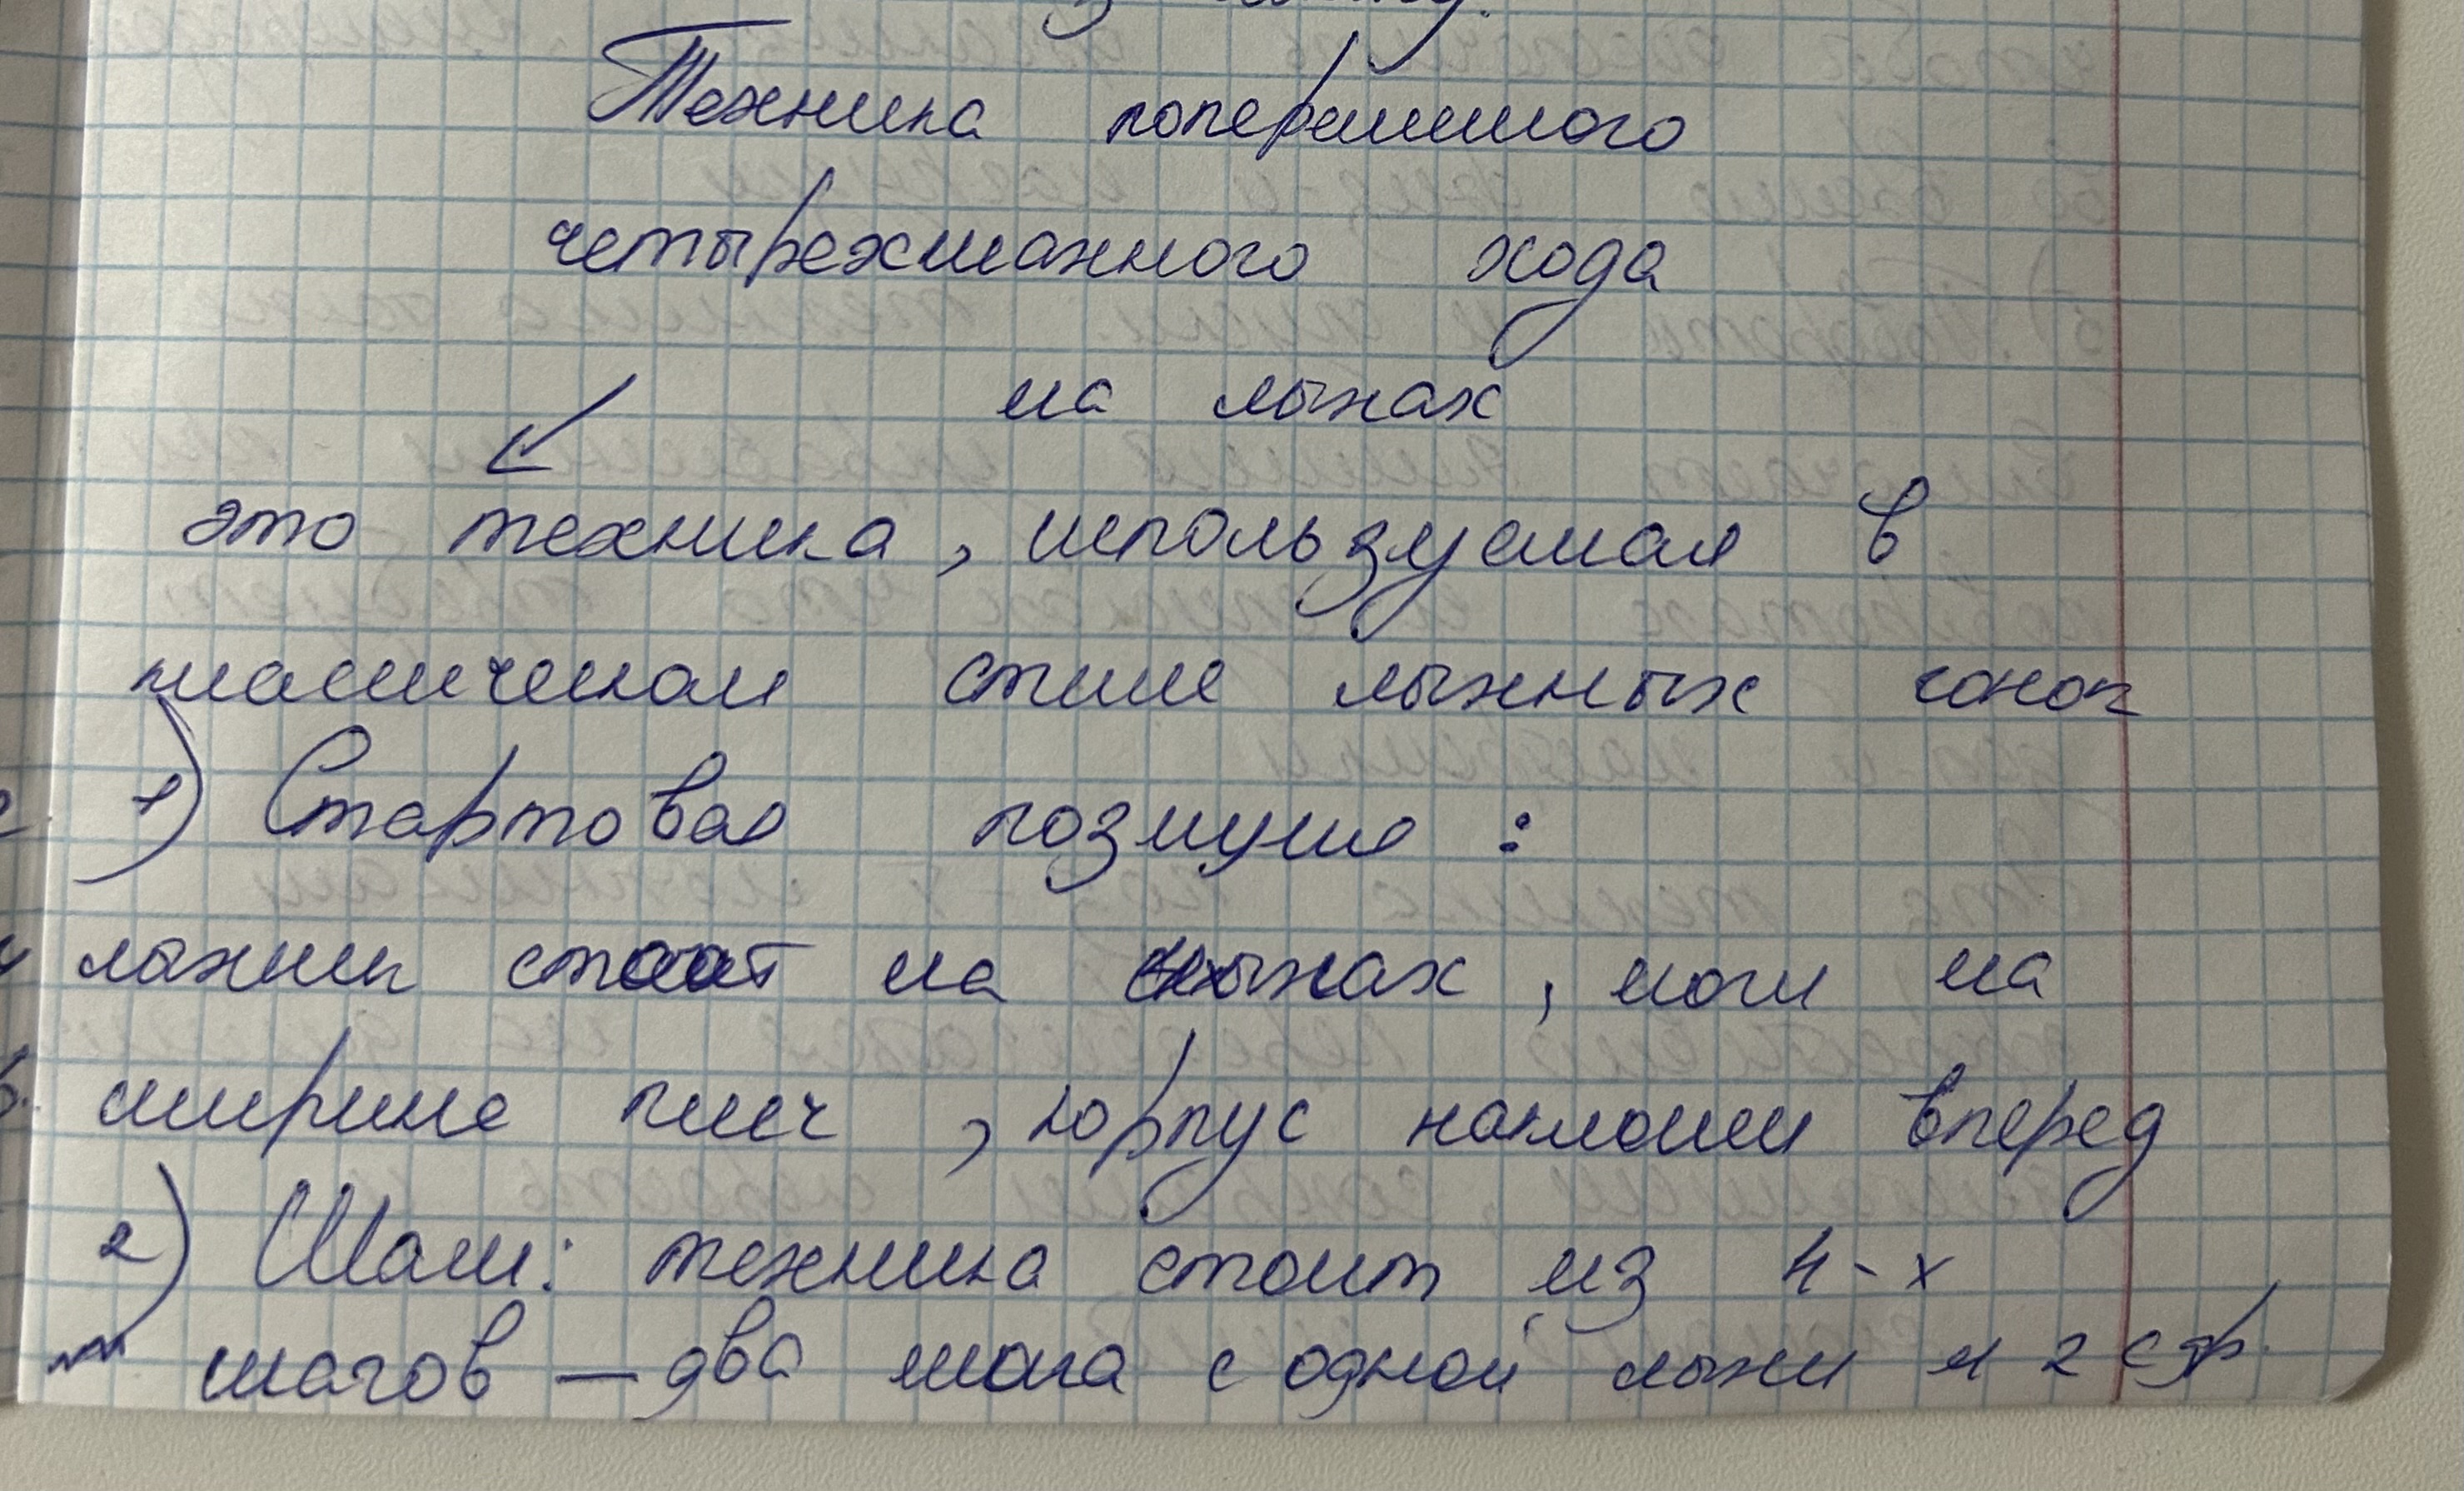 Техника попеременного
четырехшажного хода
на лыжах
это техника, используемая в
классическом стиле лыжных гонок
1) Стартовая позиция:
лыжник стоит на лыжах, ноги на
ширине плеч, корпус наклонен вперед
2) Шаги: техника стоит из 4-х
шагов — два шага с одной лыжи и 2 с др.